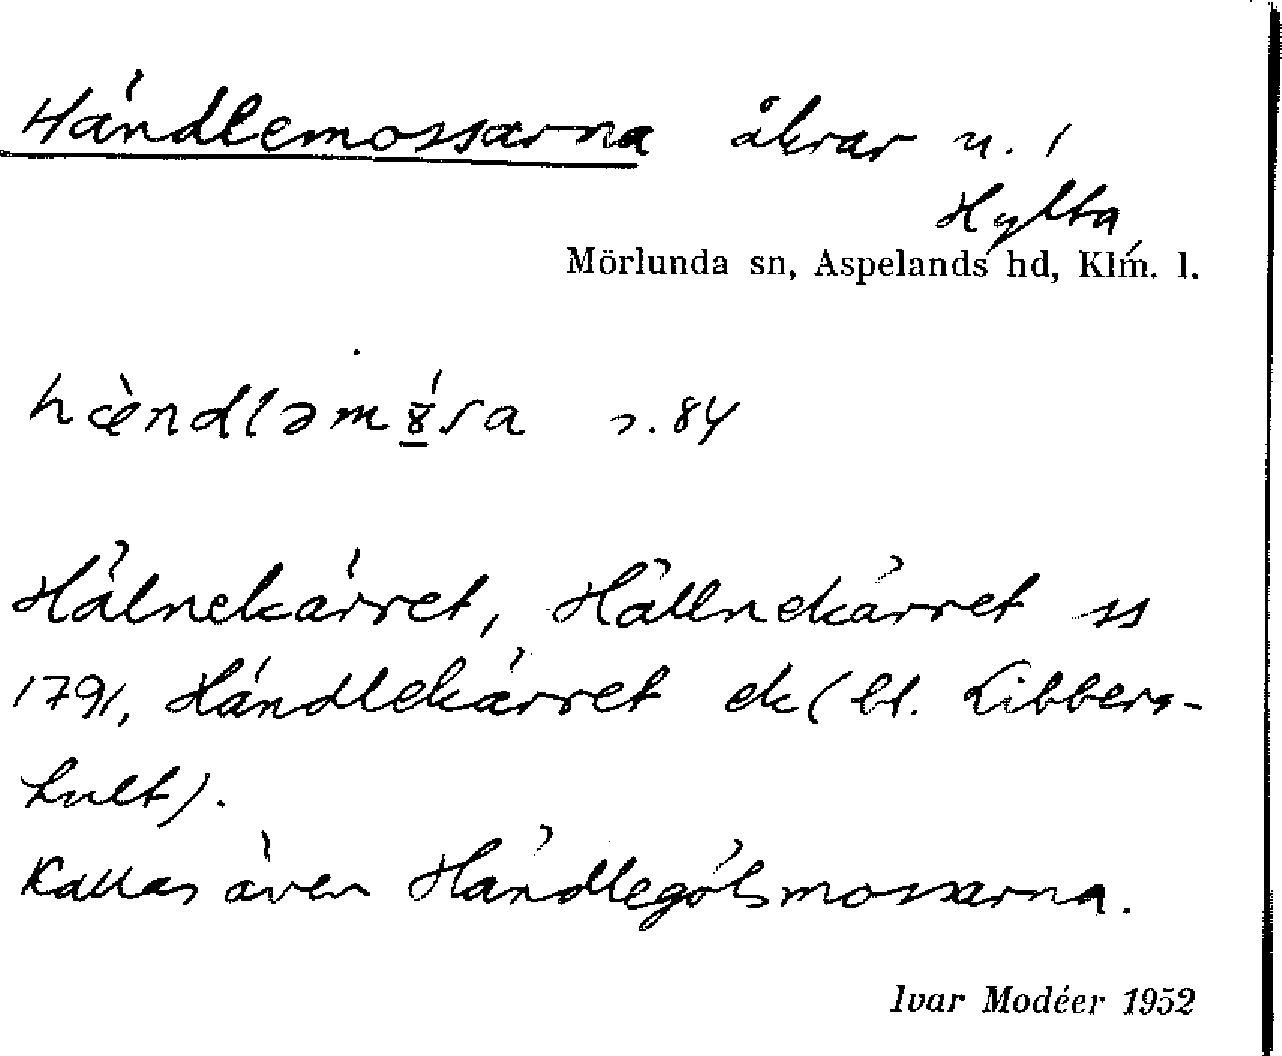 Händlemossarna åkrar n. i
Hylta
Mörlunda sn, Aspelands hd, Klm. l.
hæ̀ndləm8́sa s. 84
Hälnekärret, Hällnekärret ss
1791, Händlekärret ek (bl. Libbers-
hult).
Kallas även Händlegölsmossarna.
Ivar Modéer 1952